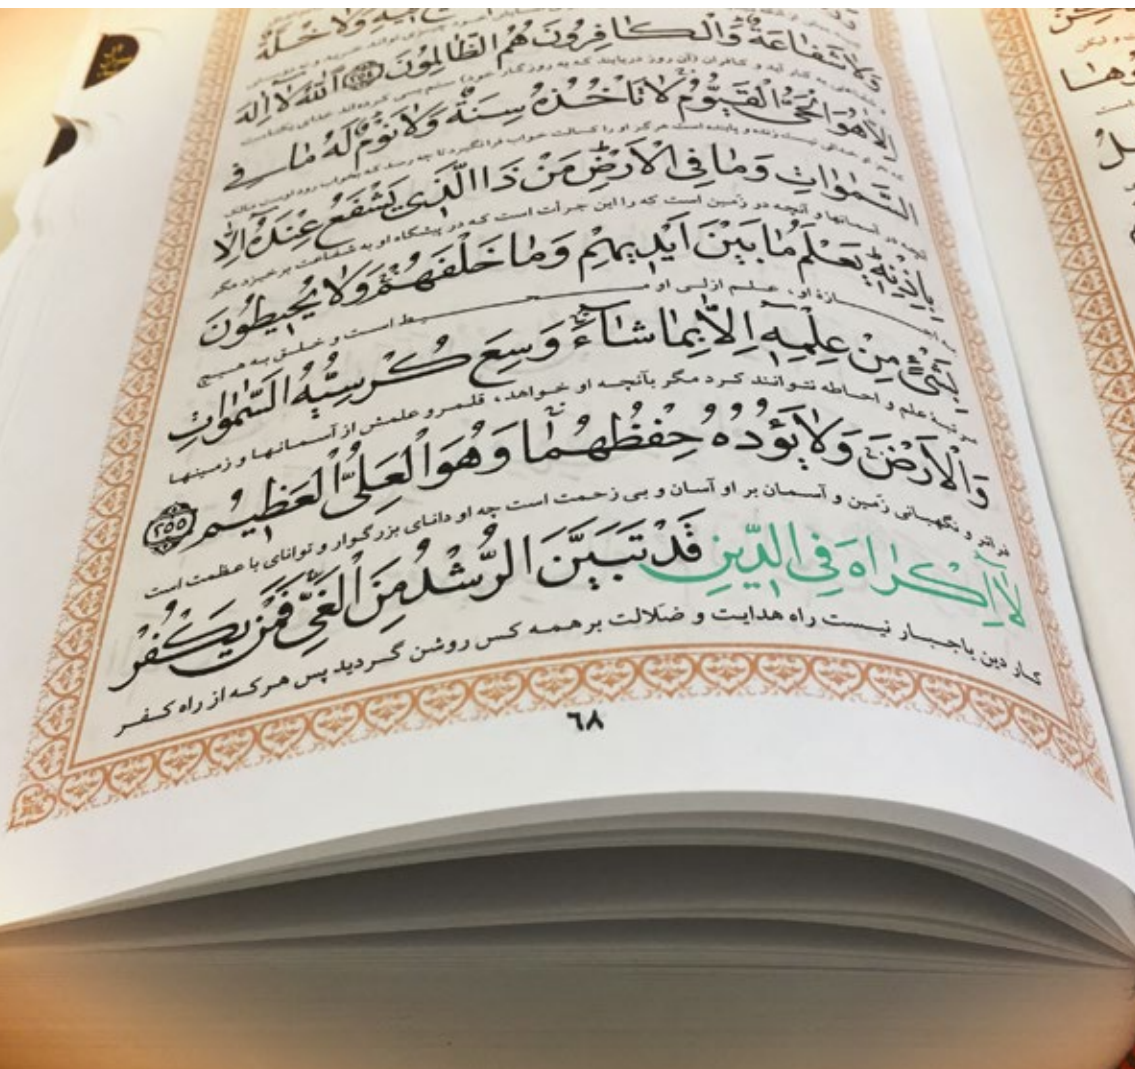 وَلَا خُلَّةٌ
وَلَا شَفَاعَةٌ وَالْكَافِرُونَ هُمُ الظَّالِمُونَ ﴿٢٥٤﴾ اَللّٰهُ لَا اِلٰهَ
به کار آید و کافران (آن روز دریابند که به روزگار خود) ستم بسی کرده‌اند خدای یکتاست
اِلَّا هُوَ الْحَیُّ الْقَیُّومُ لَا تَأْخُذُهُ سِنَةٌ وَلَا نَوْمٌ لَهُ مَا فِی
که جز او خدائی نیست زنده و پاینده است هرگز او را کسالت خواب فرا نگیرد تا چه رسد که بخواب رود اوست مالک
السَّمٰوَاتِ وَمَا فِی الْاَرْضِ مَنْ ذَا الَّذِی یَشْفَعُ عِنْدَهُ اِلَّا
آنچه در آسمانها و آنچه در زمین است که را این جرأت است که در پیشگاه او به شفاعت برخیزد مگر
بِاِذْنِهِ یَعْلَمُ مَا بَیْنَ اَیْدِیهِمْ وَمَا خَلْفَهُمْ وَلَا یُحِیطُونَ
به اجازهٔ او، علم ازلی او محیط است و خلق به هیچ
بِشَیْءٍ مِنْ عِلْمِهِ اِلَّا بِمَا شَاءَ وَسِعَ كُرْسِیُّهُ السَّمٰوَاتِ
مرتبهٔ علم و احاطه نتوانند کرد مگر بآنچه او خواهد، قلمرو علمش از آسمانها و زمینها
وَالْاَرْضَ وَلَا یَؤُدُهُ حِفْظُهُمَا وَهُوَ الْعَلِیُّ الْعَظِیمُ ﴿٢٥٥﴾
فراتر و نگهبانی زمین و آسمان بر او آسان و بی زحمت است چه او دانای بزرگوار و توانای با عظمت است
لَا اِكْرَاهَ فِی الدِّینِ قَدْ تَبَیَّنَ الرُّشْدُ مِنَ الْغَیِّ فَمَنْ یَكْفُرْ
کار دین باجبار نیست راه هدایت و ضلالت بر همه کس روشن گردید پس هر که از راه کفر
٦٨